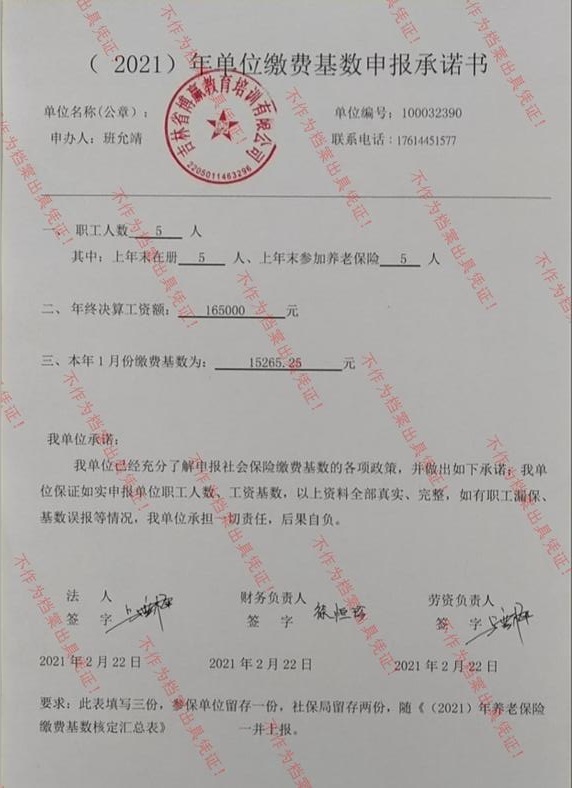 （ 2021）年单位缴费基数申报承诺书
单位名称(公章)：
单位编号：100032390
申办人：班允靖
联系电话：17614451577
吉林省博赢教育培训有限公司
2205011463296
一、 职工人数 5 人
其中：上年末在册 5 人、上年末参加养老保险 5 人
二、年终决算工资额： 165000 元
三、本年1月份缴费基数为： 15265.25 元
我单位承诺：
我单位已经充分了解申报社会保险缴费基数的各项政策，并做出如下承诺：我单
位保证如实申报单位职工人数、工资基数，以上资料全部真实、完整，如有职工漏保、
基数误报等情况，我单位承担一切责任，后果自负。
法 人
签 字
财务负责人
签 字
劳资负责人
签 字
2021年2月22日
2021年2月22日
2021年2月22日
要求：此表填写三份，参保单位留存一份，社保局留存两份，随《（2021）年养老保险
缴费基数核定汇总表》 一并上报。
不作为档案出具凭证！